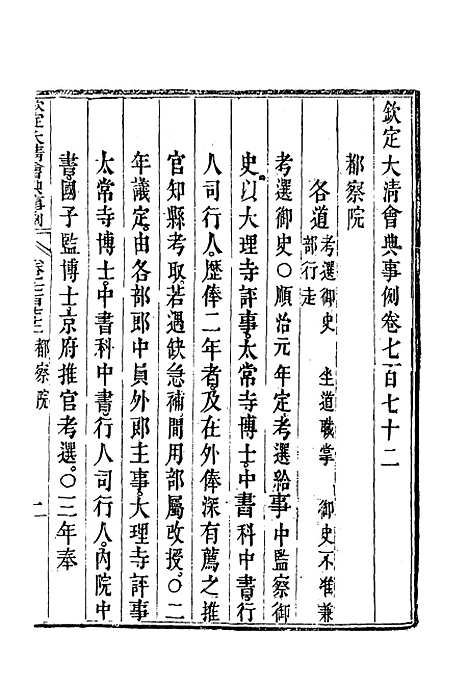 欽定大清會典事例卷七百七十二
都察院
各道 考選御史 坐道職掌 御史不準兼
部行走
考選御史○順治元年定考選給事中監察御
史以大理寺評事太常寺博士中書科中書行
人司行人歷俸二年者及在外俸深有薦之推
官知縣考取若遇缺急補間用部屬改授○二
年議定由各部郎中員外郎主事大理寺評事
太常寺博士中書科中書行人司行人內院中
書國子監博士京府推官考選○三年奉
欽定大清會典事例
卷七百七十二 都察院
一